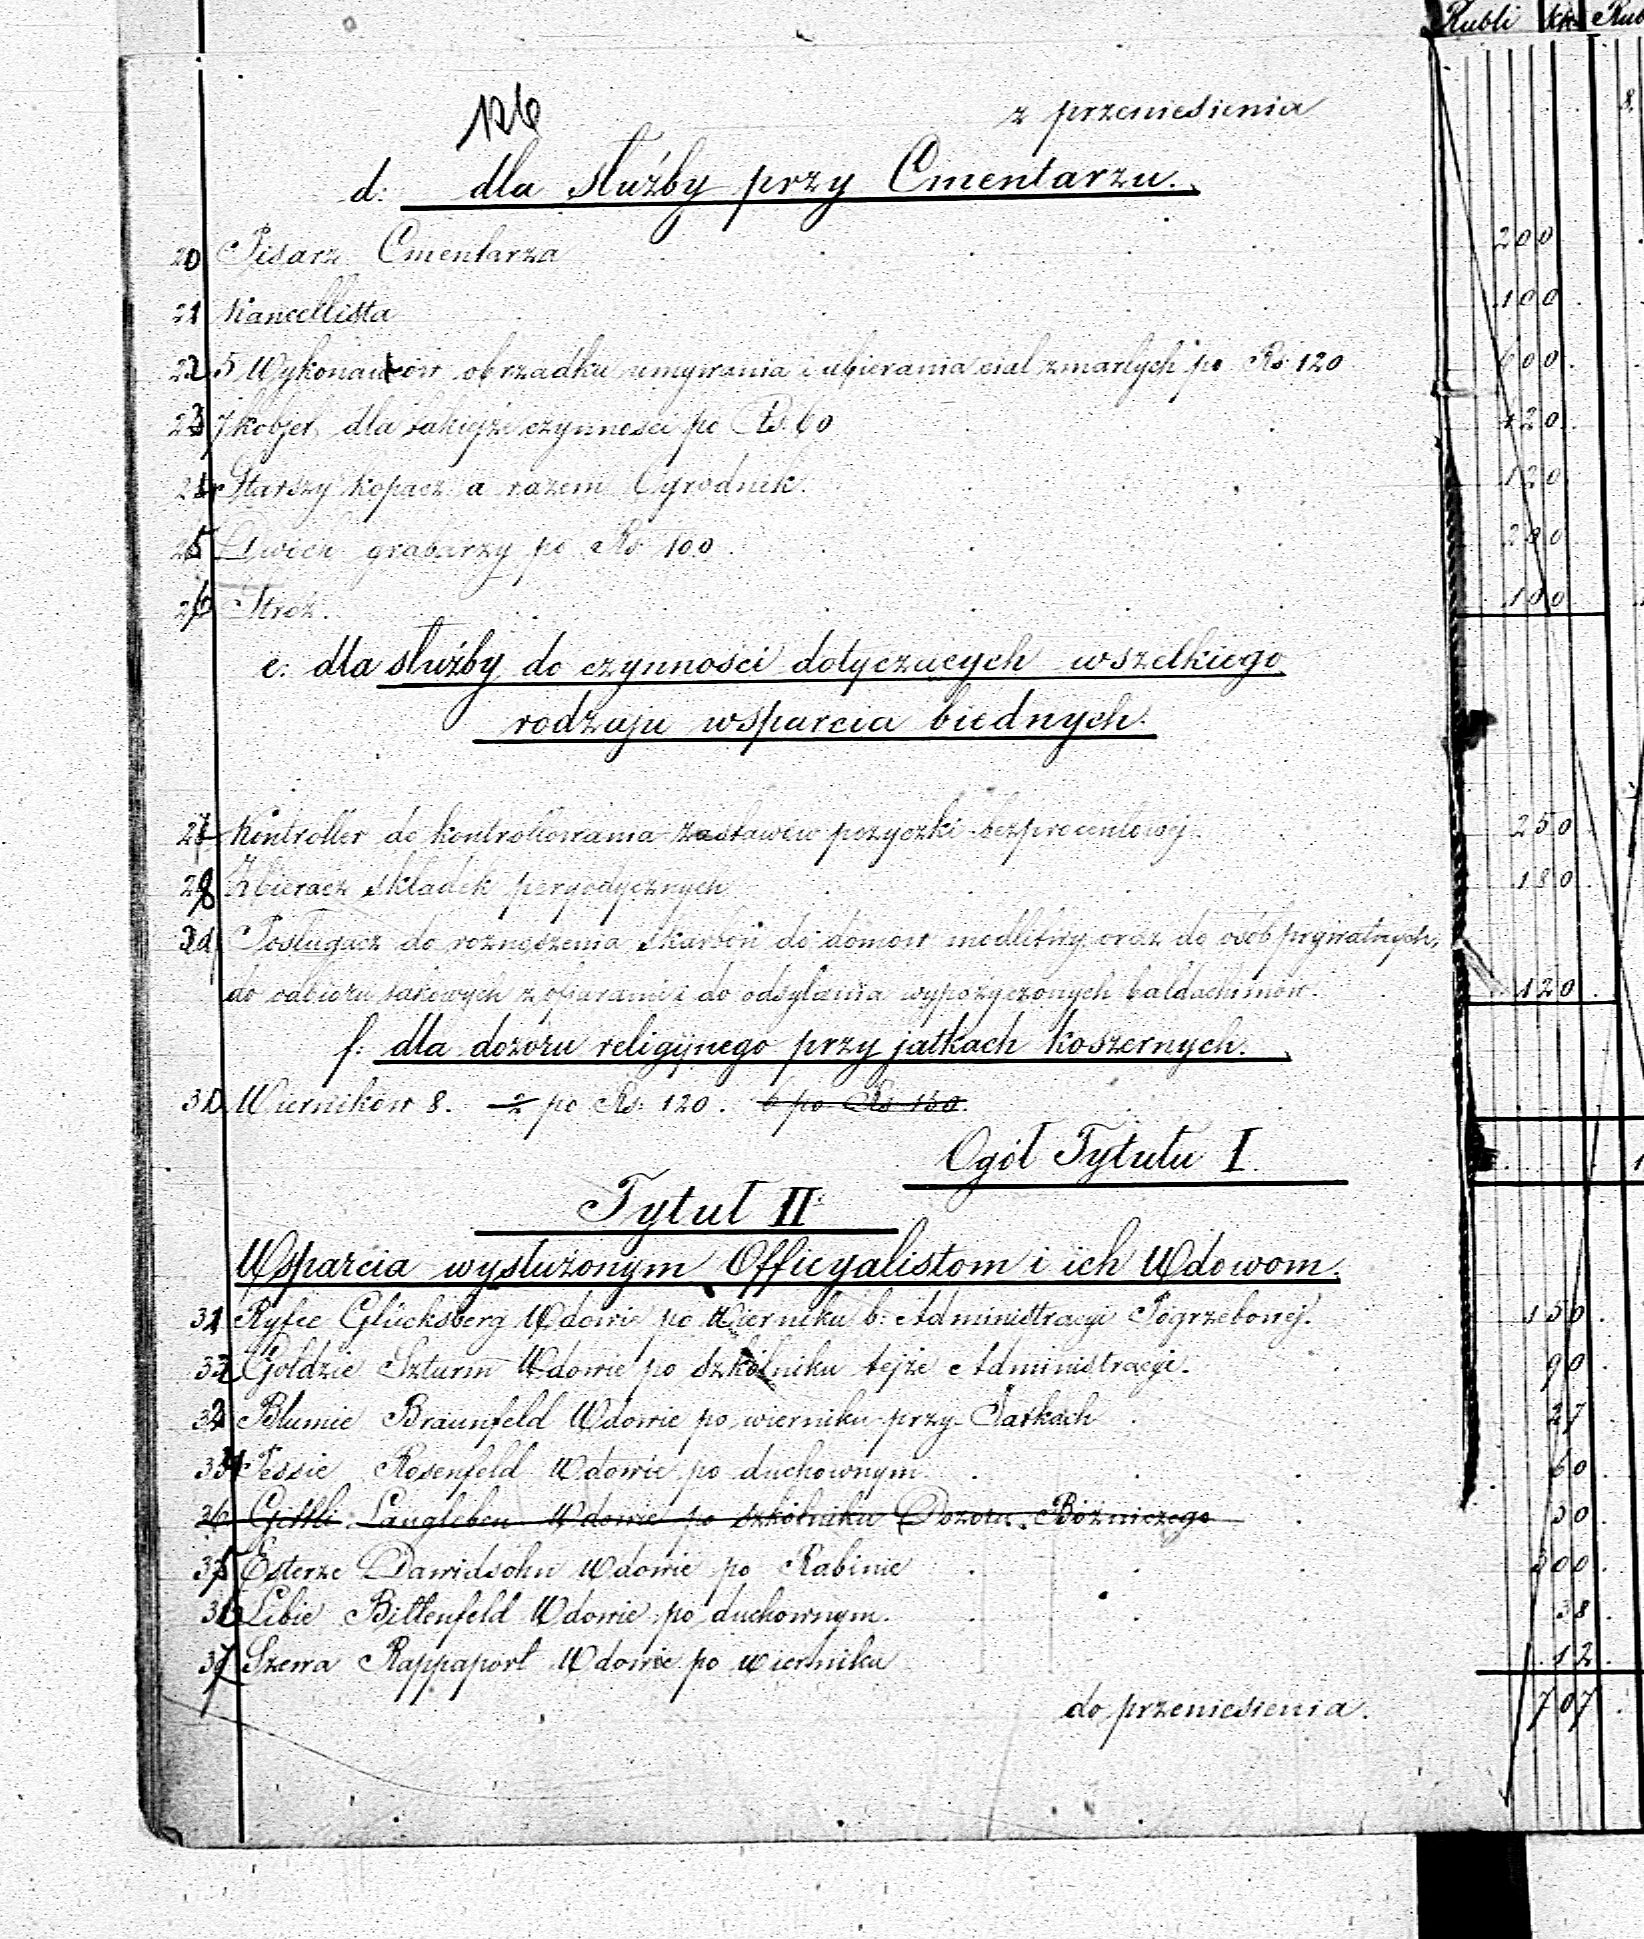 Rubli kp. Rub
126
z przeniesienia
d: dla służby przy Cmentarzu.
20 Pisarz Cmentarza 200
21 Kancellista 100
22 5 Wykonawców obrządku umywania i ubierania ciał zmarłych po Rs 120 600
23 kobjet dla takiejże czynności po Rs. 60 120
24 Starszy kopacz a razem Ogrodnik. 120
25 Dwóch grabarzy po Rs 100. 200
26 Stróż. 100
e: dla służby do czynności dotyczących wszelkiego
rodzaju wsparcia biednych.
27 Kontroller do kontrollowania zastawów pożyczki bezprocentowej. 250
28 Zbieracz składek peryodycznych 180
Posługacz do roznoszenia skarbon do domów modlitwy oraz do osób prywatnych,
do odbioru takowych z ofiarami i do odsyłania wypożyczonych baldachimów. 120
f: dla dozoru religijnego przy jatkach koszernych.
30 Wierników 8. 2 po Rs. 120. 6 po Rs 150.
Ogół Tytułu I.
Tytuł II
Wsparcia wysłużonym Officyalistom i ich Wdowom.
31 Ryfce Glücksberg Wdowie po Wierniku b: Administracyi Pogrzebowej. 150
32 Gołdzie Szturm Wdowie po szkólniku tejże Administracyi. 90
33 Blumie Braunfeld Wdowie po wierniku przy Jatkach 27
34 Pessie Rosenfeld Wdowie po duchownym 60
36 Gittli Langleben Wdowie po szkólniku Dozoru Bóżniczego 30
35 Esterze Dawidsohn Wdowie po Rabinie 300
36 Libie Bittenfeld Wdowie po duchownym. 38
37 Szewa Rappaport Wdowie po wierniku 12
do przeniesienia. 707